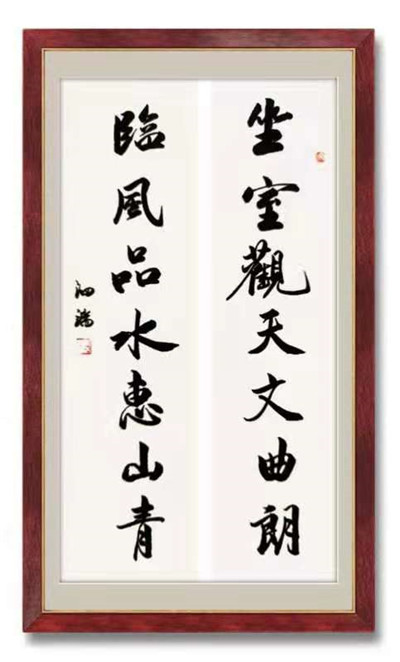 坐室觀天文曲朗
臨風品水惠山青